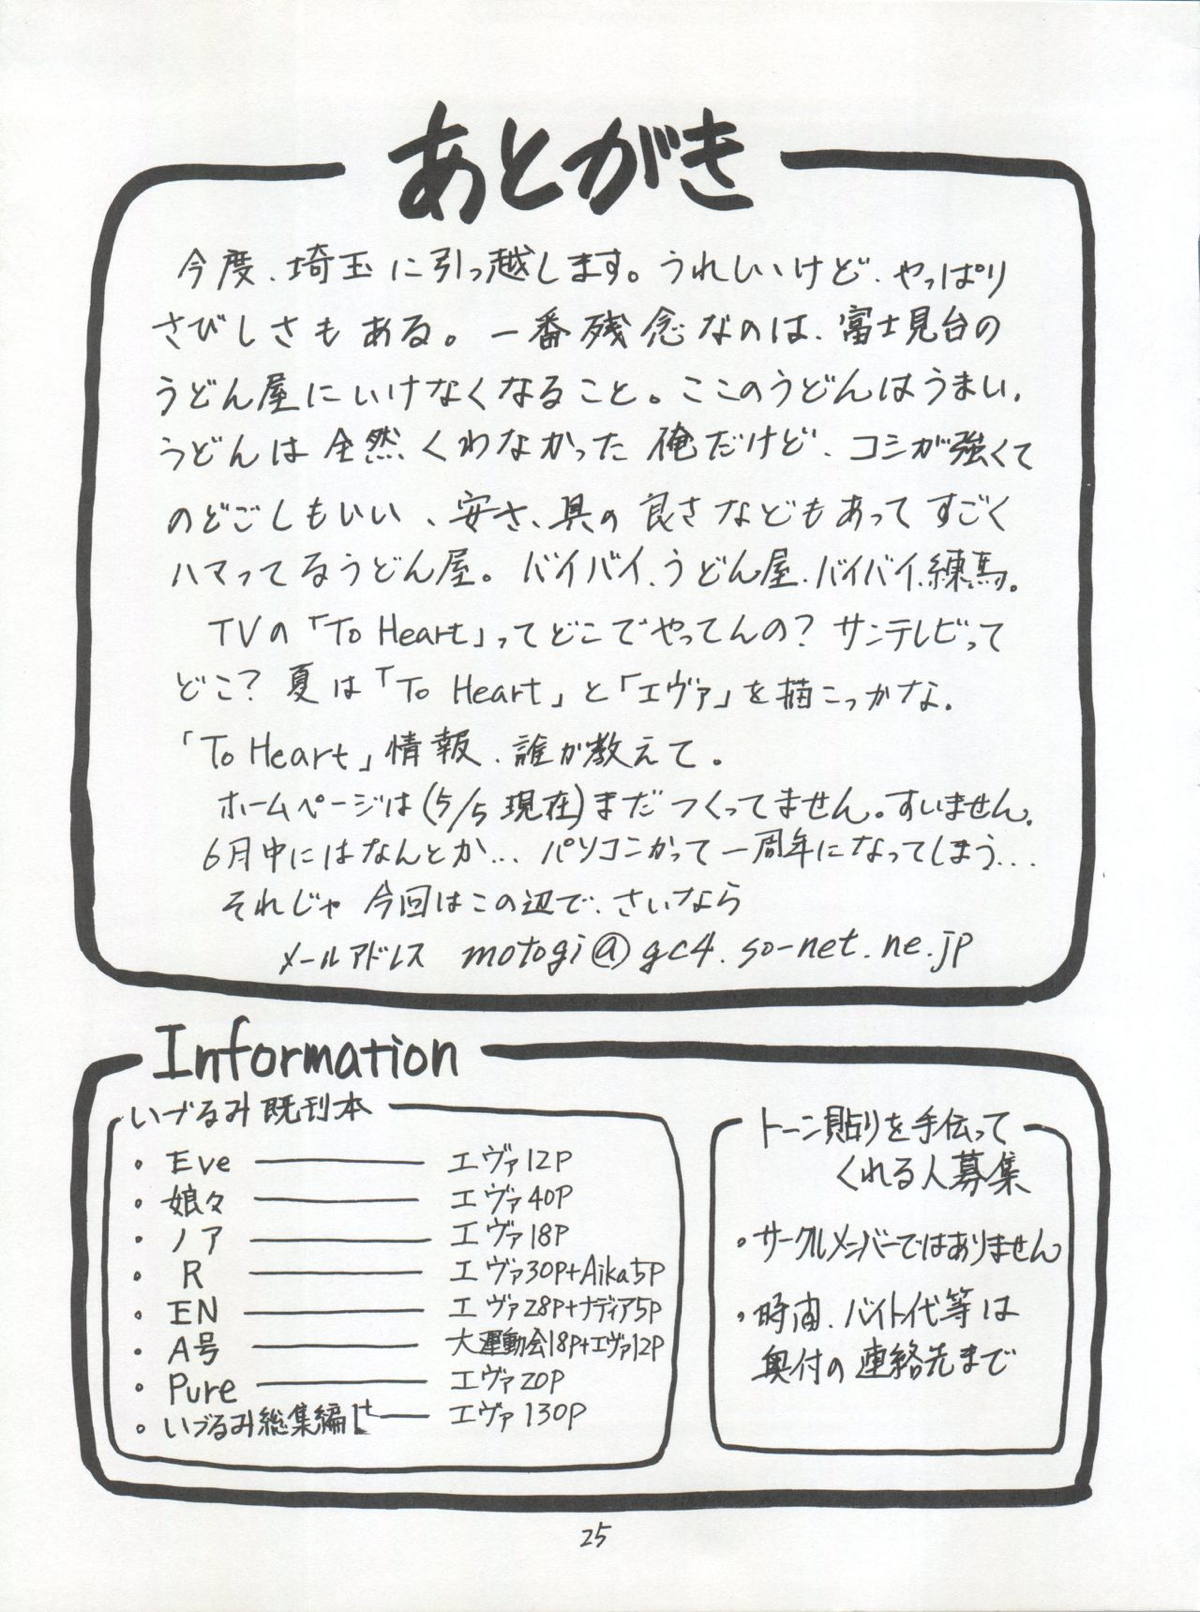 あとがき
今度、埼玉に引っ越します。うれしいけど、やっぱり
さびしさもある。一番残念なのは、富士見台の
うどん屋にいけなくなること。ここのうどんはうまい。
うどんは全然くわなかった俺だけど、コシが強くて
のどごしもいい、安さ、具の良さなどもあってすごく
ハマってるうどん屋。バイバイ、うどん屋、バイバイ、練馬。
TVの「To Heart」ってどこでやってんの？サンテレビって
どこ？夏は「To Heart」と「エヴァ」を描こっかな。
「To Heart」情報、誰か教えて。
ホームページは(5/5現在)まだつくってません。すいません。
6月中にはなんとか… パソコンかって一周年になってしまう…
それじゃ今回はこの辺で、さいなら
メールアドレス motogi@gc4.so-net.ne.jp
Information
いづるみ既刊本
・Eve エヴァ12P
・娘々 エヴァ40P
・ノア エヴァ18P
・R エヴァ30P+Aika5P
・EN エヴァ28P+ナディア5P
・A号 大運動会18P+エヴァ12P
・Pure エヴァ20P
・いづるみ総集編 エヴァ130P
トーン貼りを手伝って
くれる人募集
・サークルメンバーではありません
・時間、バイト代等は
奥付の連絡先まで
25